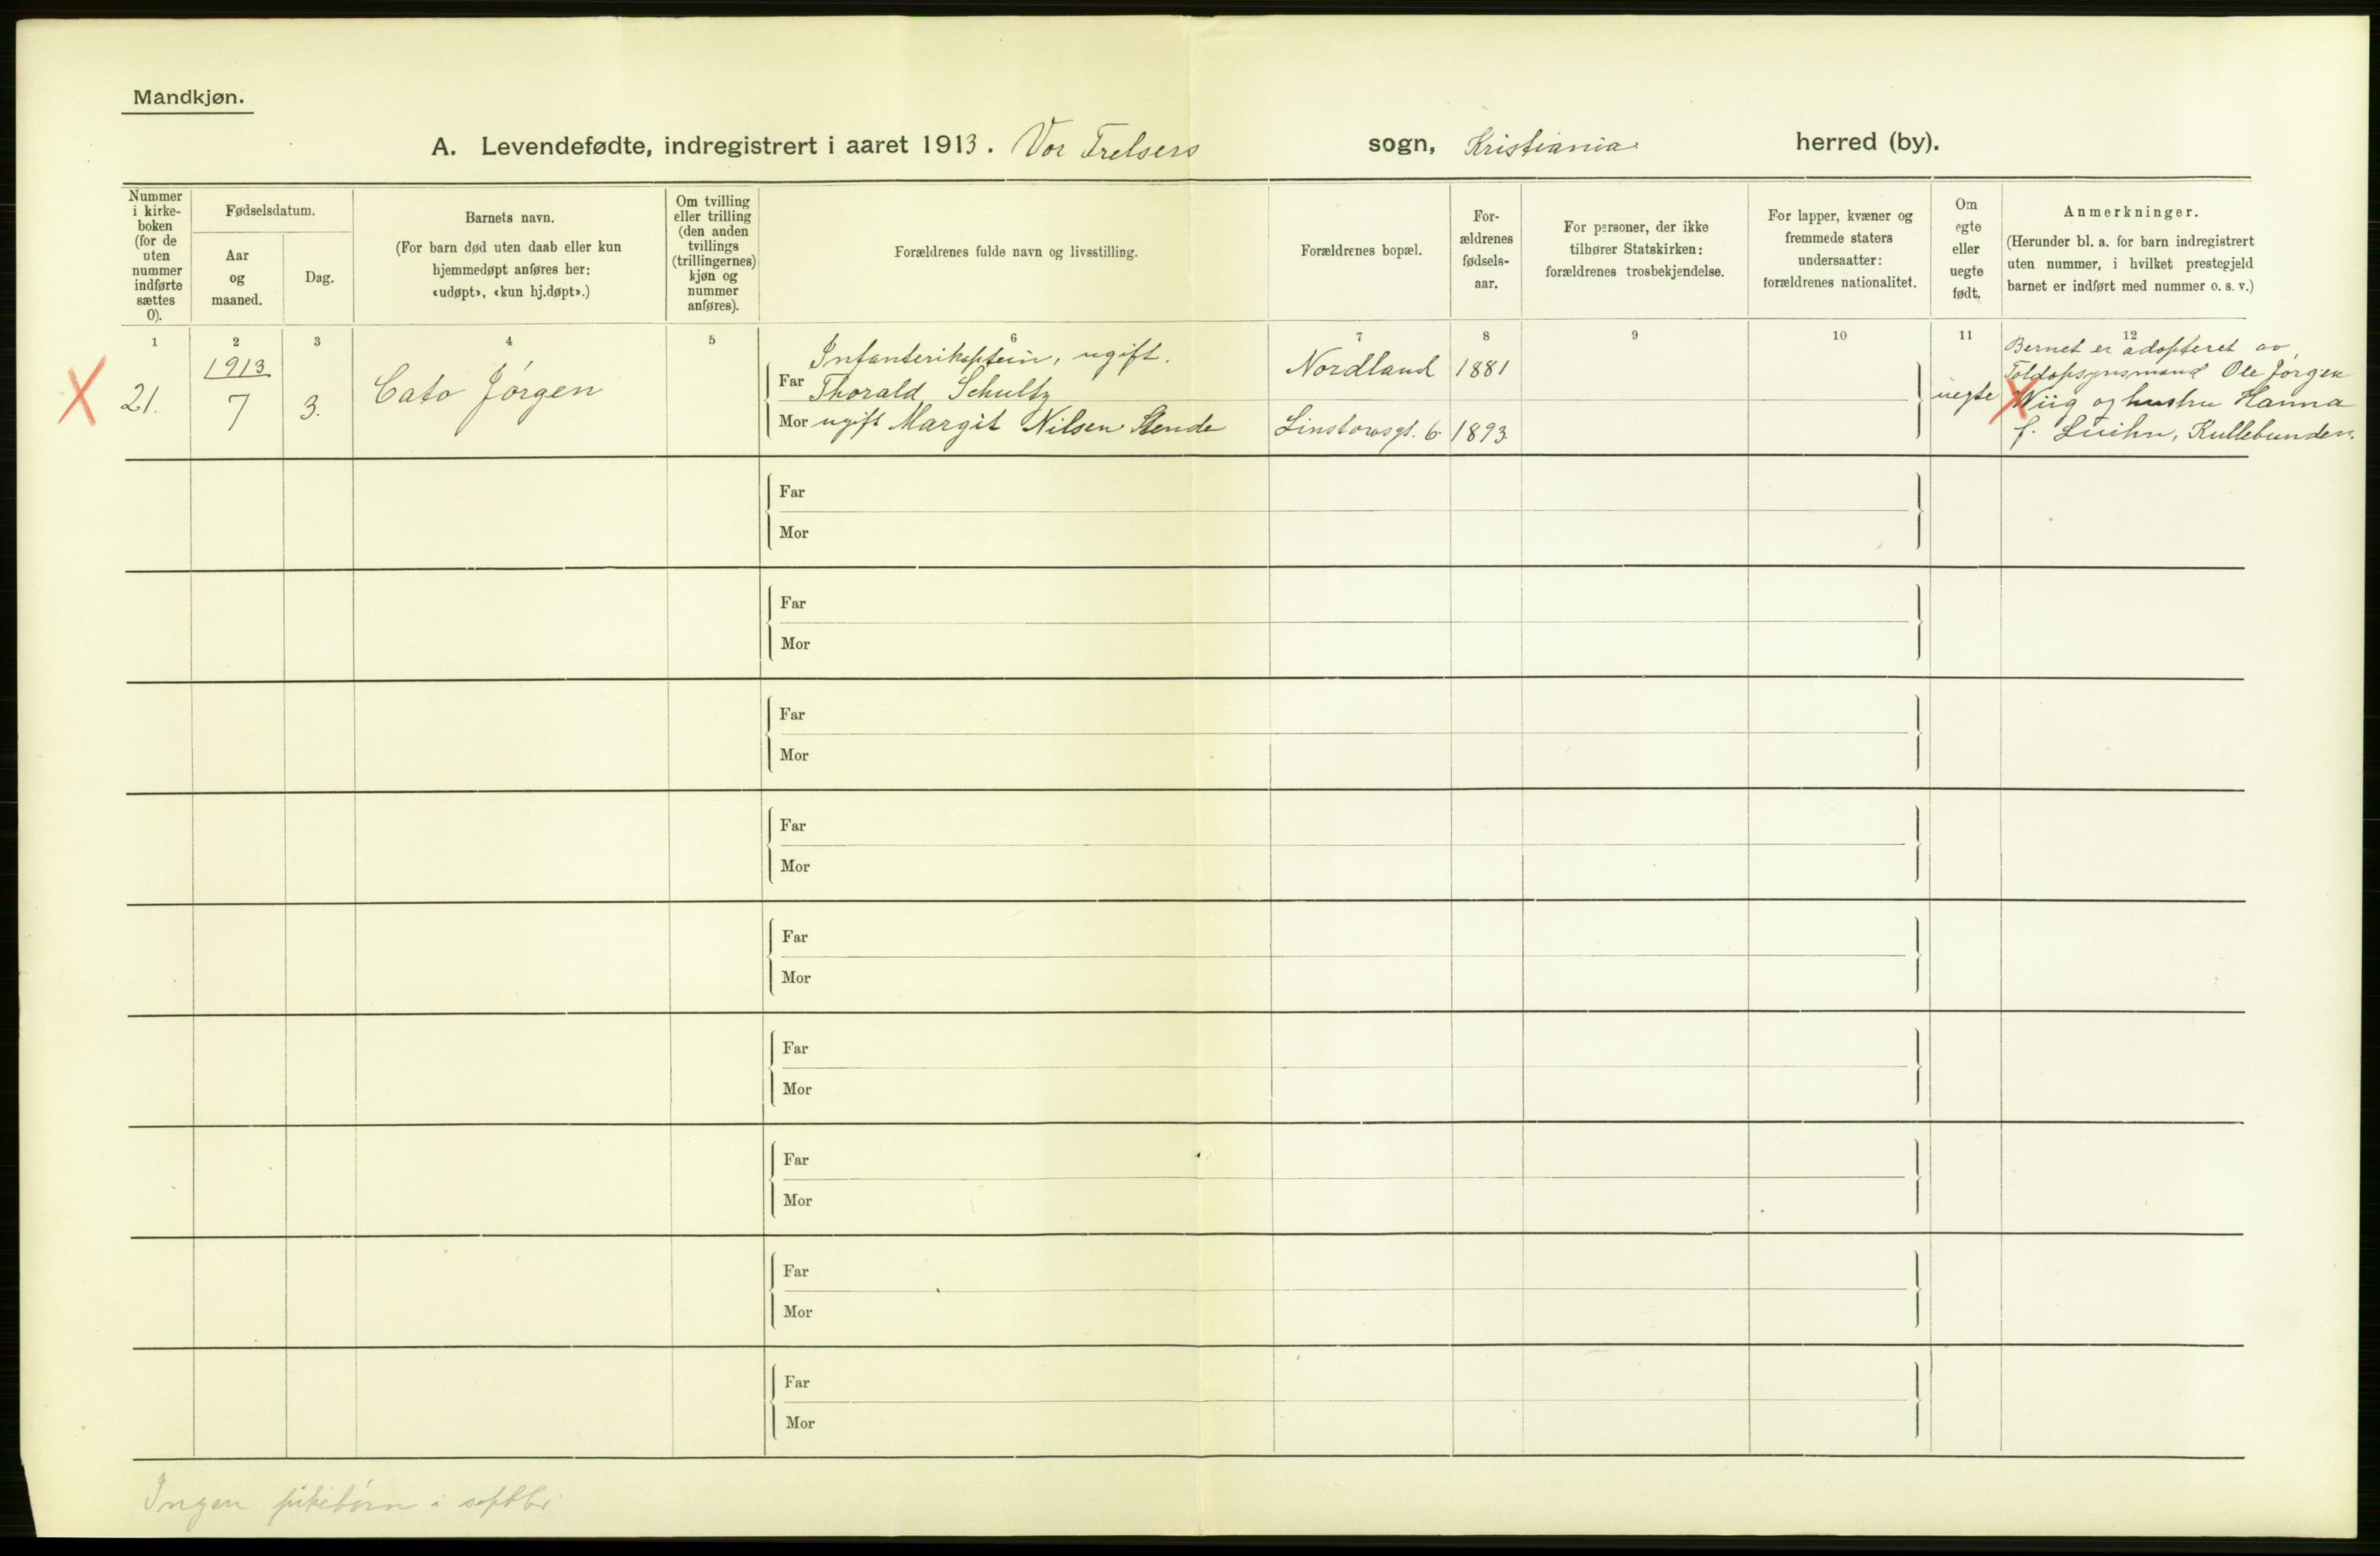 Mandkjøn.
A. Levendefødte, indregistrert i aaret 1913. Vor Frelsers sogn, Kristiania herred (by).
Nummer
i kirke-
boken
(for de
uten
nummer
indførte
sættes
0).
Fødselsdatum.
Aar
og
maaned.
Dag.
Barnets navn.
(For barn død uten daab eller kun
hjemmedøpt anføres her:
«udøpt», «kun hj.døpt».)
Om tvilling
eller trilling
(den anden
tvillings
(trillingernes)
kjøn og
nummer
anføres).
Forældrenes fulde navn og livsstilling.
Forældrenes bopæl.
For-
ældrenes
fødsels-
aar.
For personer, der ikke
tilhører Statskirken:
forældrenes trosbekjendelse.
For lapper, kvæner og
fremmede staters
undersaatter:
forældrenes nationalitet.
Om
egte
eller
uegte
født.
Anmerkninger.
(Herunder bl. a. for barn indregistrert
uten nummer, i hvilket prestegjeld
barnet er indført med nummer o. s. v.)
1 2 3 4 5 6 7 8 9 10 11 12
21.
1913
7
3.
Cato Jørgen
Infanterikaptein, ugift.
Far Thorald Schultz
Mor ugift Margit Nilsen Stende
Nordland 1881
Linstowsgt. 6. 1893.
uegte
Bernet er adopteret av
Toldopsynsmand Ole Jørgen
Wiig og hustru Hanna
f. Luihn, Kullebunden.
Far
Mor
Far
Mor
Far
Mor
Far
Mor
Far
Mor
Far
Mor
Far
Mor
Far
Mor
Far
Mor
Ingen pikebørn i septbr.